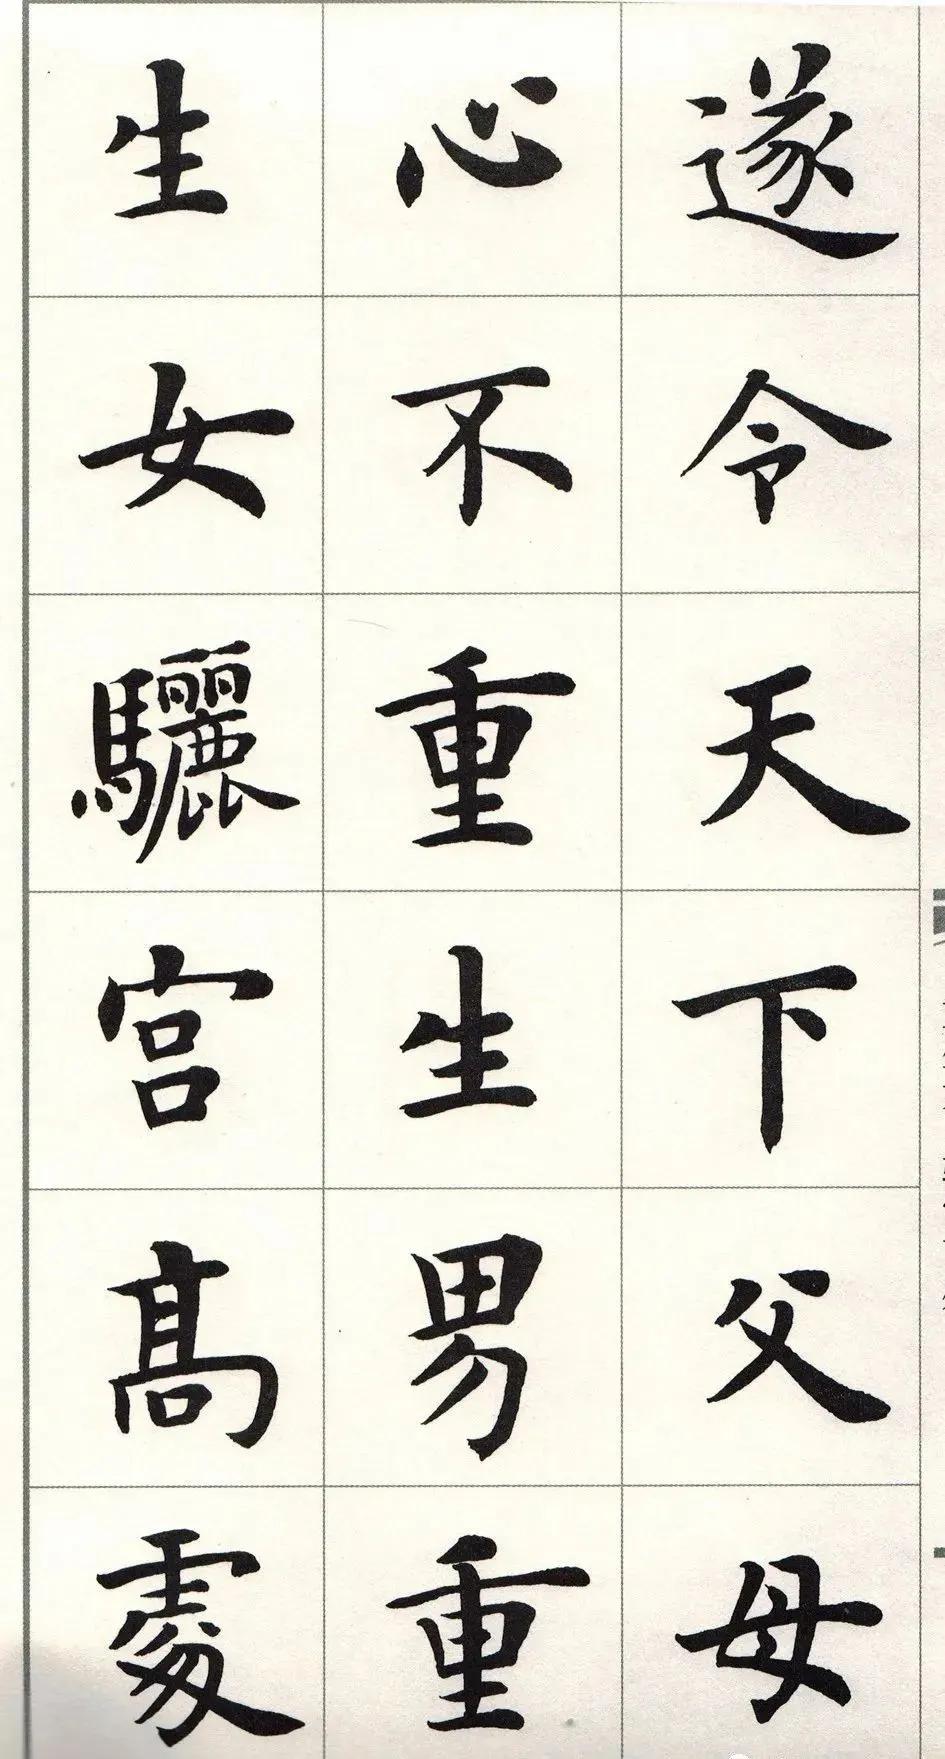 遂令天下父母
心不重生男重
生女驪宫髙處